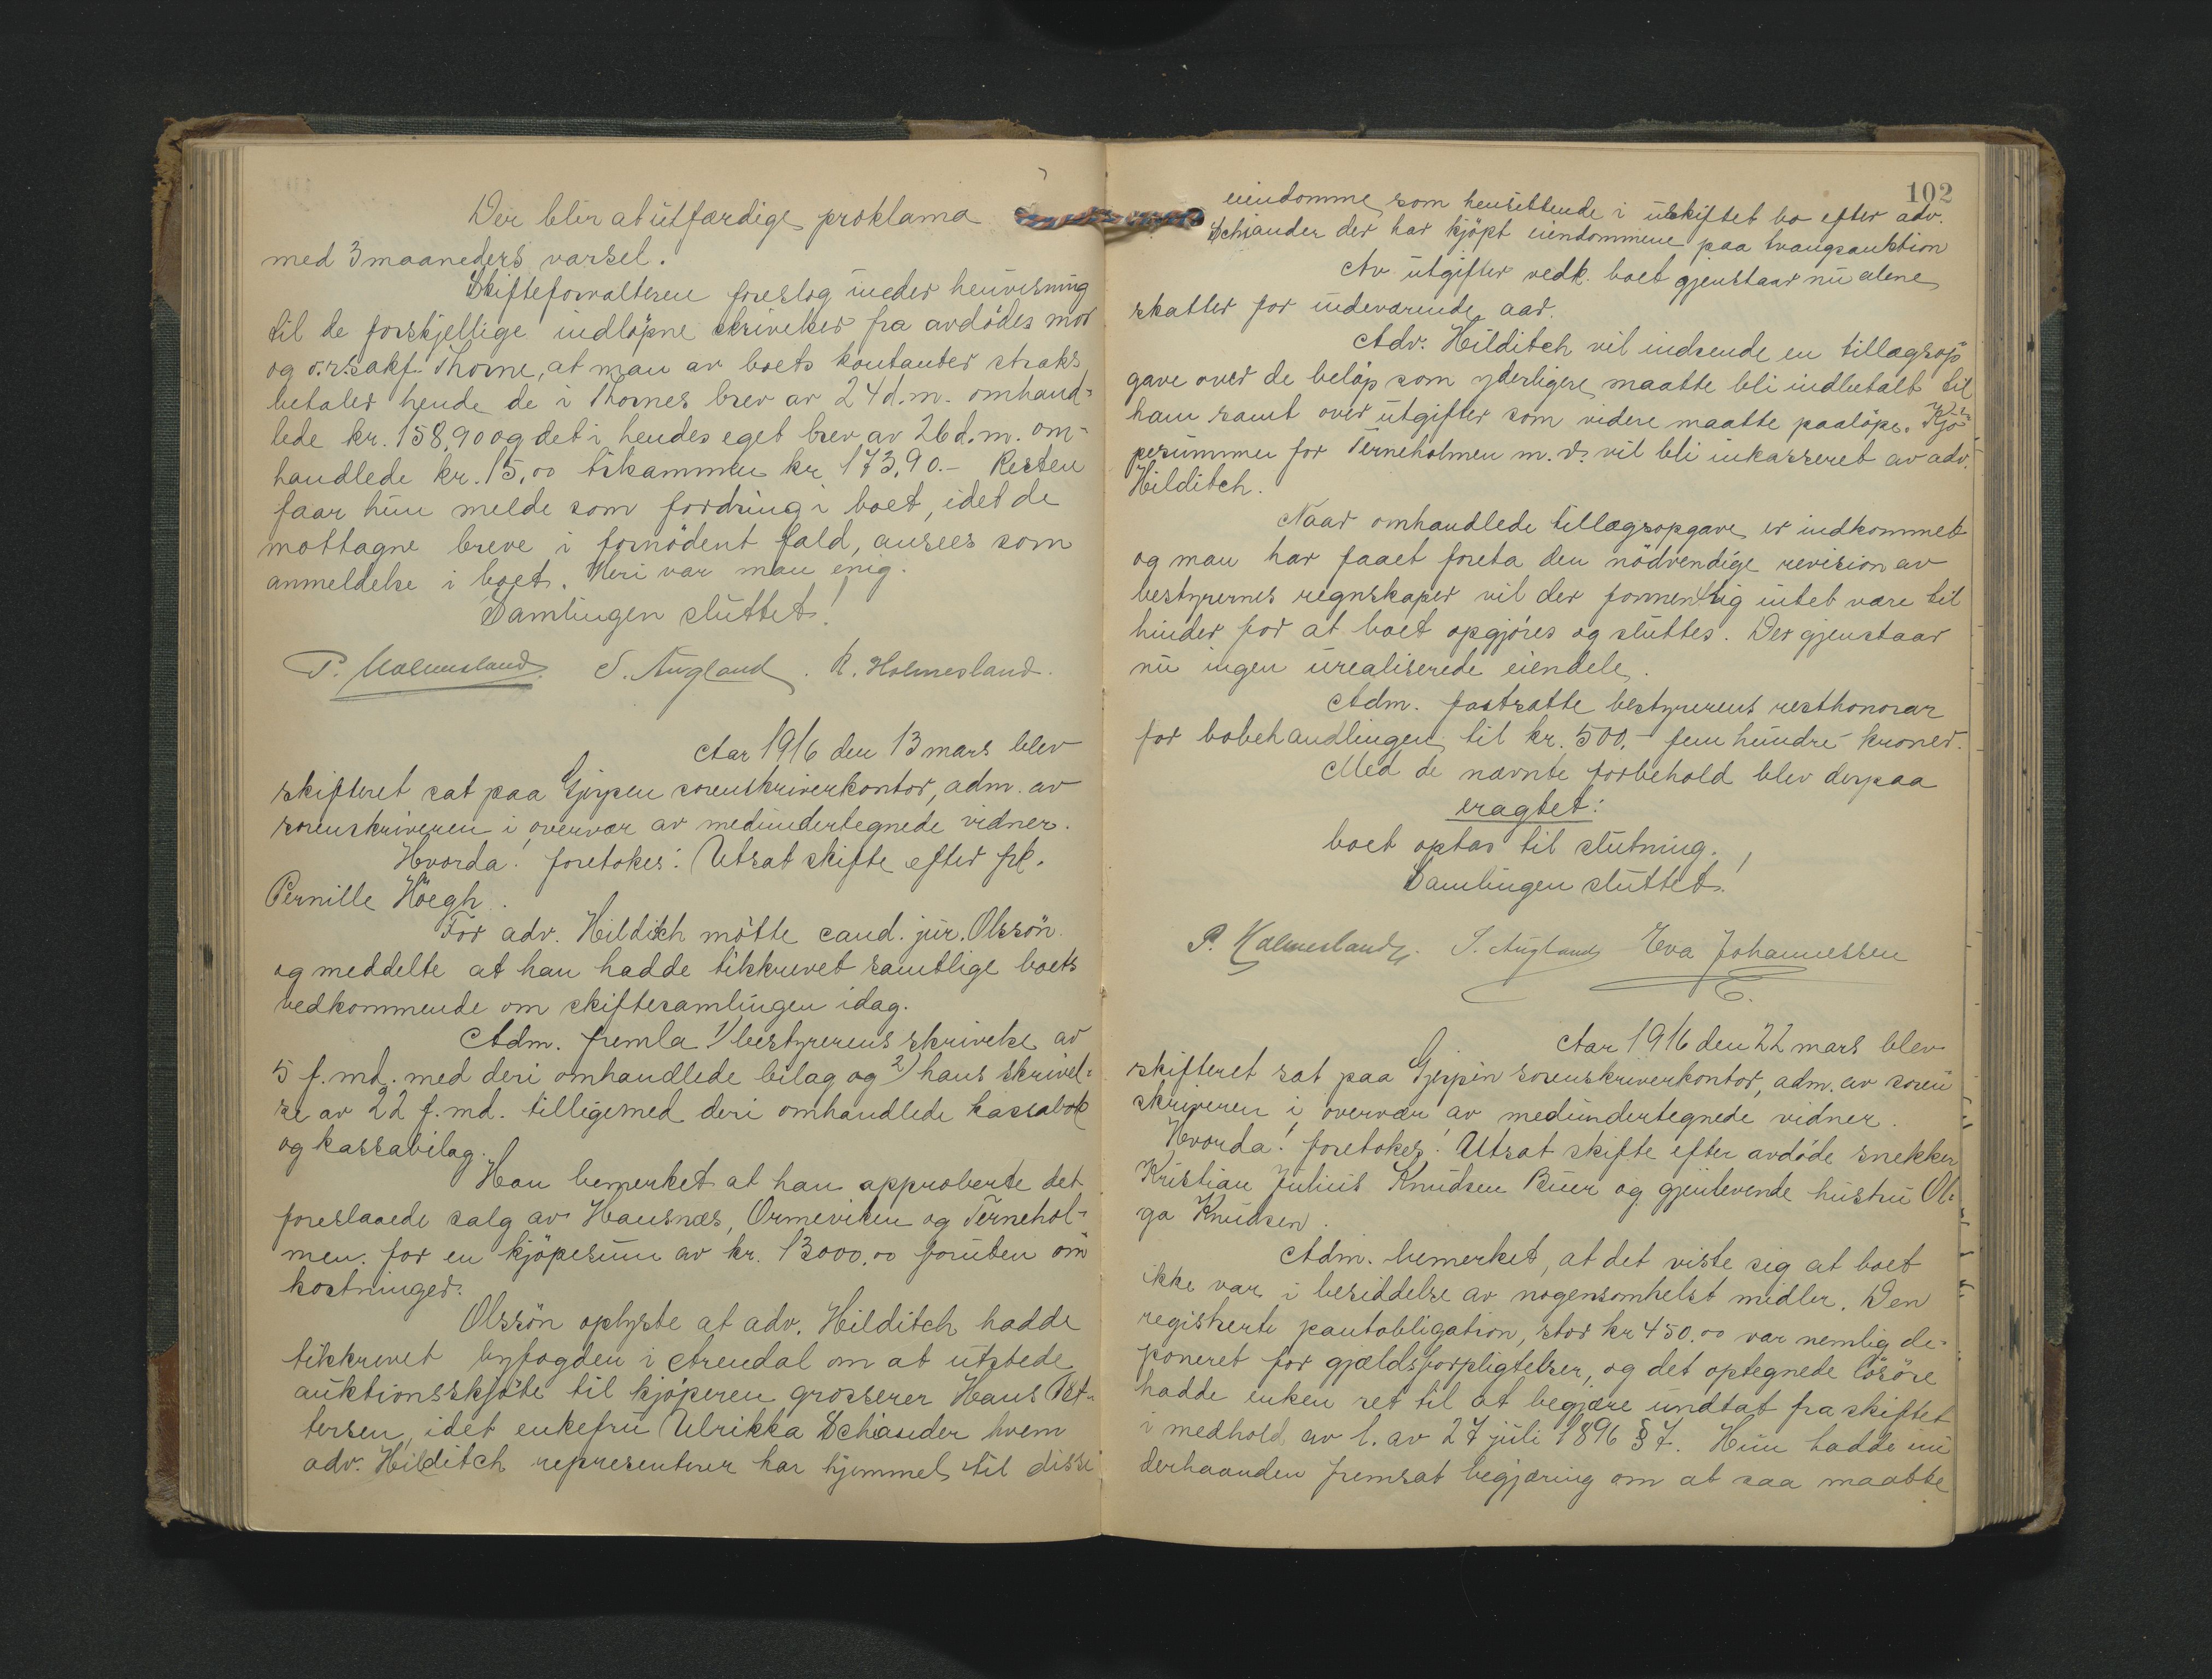 Der blir at utfærdige proklama
med 3 maaneders varsel.
Skifteforvalteren foreslog under henvisning
til de forskjellige indløpne skrivelser fra avdödes mor
og o.r.sakf. Thorne, at man av boets kontanter straks
betaler hende de i Thornes brev av 24 d.m. omhand-
lede kr. 158,90 og det i hendes eget brev av 26 d.m. om-
handlede kr. 15,00 tilsammen kr. 173,90.- Resten
faar hun melde som fordring i boet, idet de
mottagne breve i fornödent fald, ansees som
anmeldelse i boet. Heri var man enig.
Samlingen sluttet!
P. Holmesland. S. Augland. R. Holmesland.
Aar 1916 den 13 mars blev
skifteret sat paa Gjerpen sorenskriverkontor, adm. av
sorenskriveren i overvær av medundertegnede vidner.
Hvorda! foretokes: Utsat skifte efter frk.
Pernille Höegh.
For adv. Hilditch mötte cand. jur. Olssön
og meddelte at han hadde tilskrevet samtlige boets
vedkommende om skiftesamlingen idag.
Adm. fremla 1) bestyrerens skrivelse av
5 f. md. med deri omhandlede bilag og 2) hans skrivel-
se av 22 f. md. tilligemed deri omhandlede kassabok
og kassabilag.
Han bemerket at han approberte det
foreslaaede salg av Hausnæs, Ormeviken og Ternehol-
men. for en kjöpesum av kr. 13000,00 foruten om
kostninger.
Olssön oplyste at adv. Hilditch hadde
tilskrevet byfogden i Arendal om at utstede
auktionsskjöte til kjöperen grosserer Hans Pet-
tersen, idet enkefru Ulrikka Schiander hvem
adv. Hilditch representerer har hjemmel til disse
102
eiendomme som hensittende i uskiftet bo efter adv.
Schiander der har kjöpt eiendommene paa tvangsauktion
Av utgifter vedk. boet gjenstaar nu alene
skatter for indeværende aar.
Adv. Hilditch vil indsende en tillægsop
gave over de belöp som yderligere maatte bli indbetalt til
ham samt over utgifter som videre maatte paalöpe. Kjö-
pesummen for Terneholmen m.v. vil bli inkasseret av adv.
Hilditch.
Naar omhandlede tillægsopgave er indkommet
og man har faaet foreta den nödvendige revision av
bestyrernes regnskaper vil der formentlig intet være til
hinder for at boet opgjöres og sluttes. Der gjenstaar
nu ingen urealiserede eiendele.
Adm. fastsatte bestyrerens resthonorar
for bobehandlingen til kr. 500,- fem hundre kroner.
Med de nævnte forbehold blev derpaa
eragtet:
boet optas til slutning.
Samlingen sluttet!
P. Holmesland. S. Augland Eva Johannessen
Aar 1916 den 22 mars blev
skifteret sat paa Gjerpen sorenskriverkontor, adm. av soren
skriveren i overvær av medundertegnede vidner.
Hvorda! foretokes: Utsat skifte efter avdöde snekker
Kristian Julius Knudsen Buer og gjenlevende hustru Ol-
ga Knudsen.
Adm. bemerket, at det viste sig at boet
ikke var i besiddelse av nogensomhelst midler. Den
registrerte pantobligation, stor kr 450.00 var nemlig de-
poneret for gjældsforpligtelser, og det optegnede lösöre
hadde enken ret til at begjære undtat fra skiftet
i medhold av l. av 27 juli 1896 § 7. Hun hadde un
derhaanden fremsat begjæring om at saa maatte